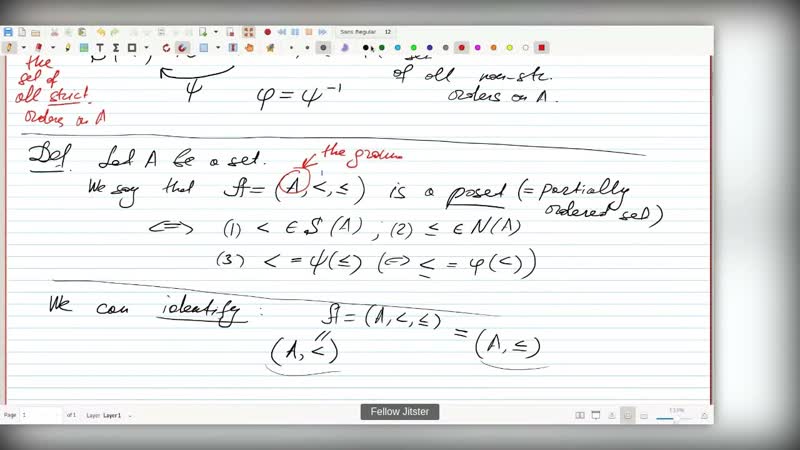 Sans Regular 12
the
set of
all strict
orders on A
ψ
φ = ψ⁻¹
of all non-str.
orders on A.
the groun
Def. Let A be a set.
We say that 𝔸 = (A, <, ≤) is a poset (= partially
ordered set)
⟺ (1) < ∈ S(A) ; (2) ≤ ∈ N(A)
(3) < = ψ(≤) (⟺ ≤ = φ(<))
We can identify : 𝔸 = (A, <, ≤) = (A, ≤)
(A, <)
Page 1 of 1 Layer Layer 1
Fellow Jitster